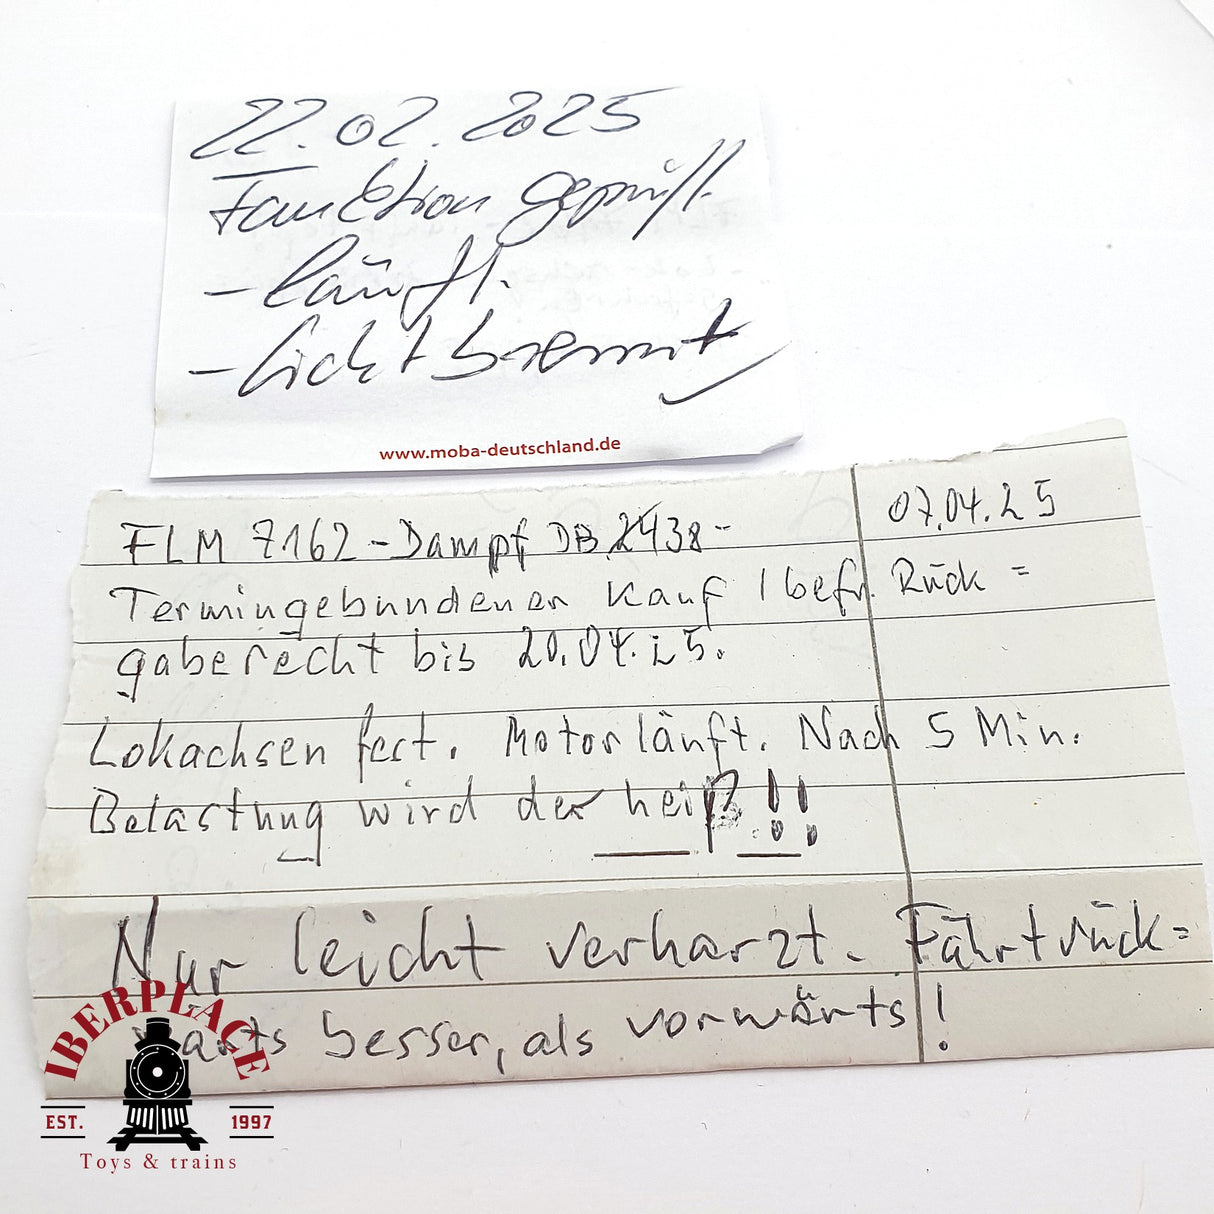 22.02.2025
Funktion geprüft.
- läuft.
- Licht brennt
www.moba-deutschland.de
FLM 7162 - Dampf DB 2438 -
07.04.25
Termingebundener Kauf / befr. Rück =
gaberecht bis 20.04.25.
Lokachsen fest. Motor läuft. Nach 5 Min.
Belastung wird der heiß!!
Nur leicht verharzt. Fährt rück =
wärts besser, als vorwärts!
IBERPLACE
EST. 1997
Toys & trains